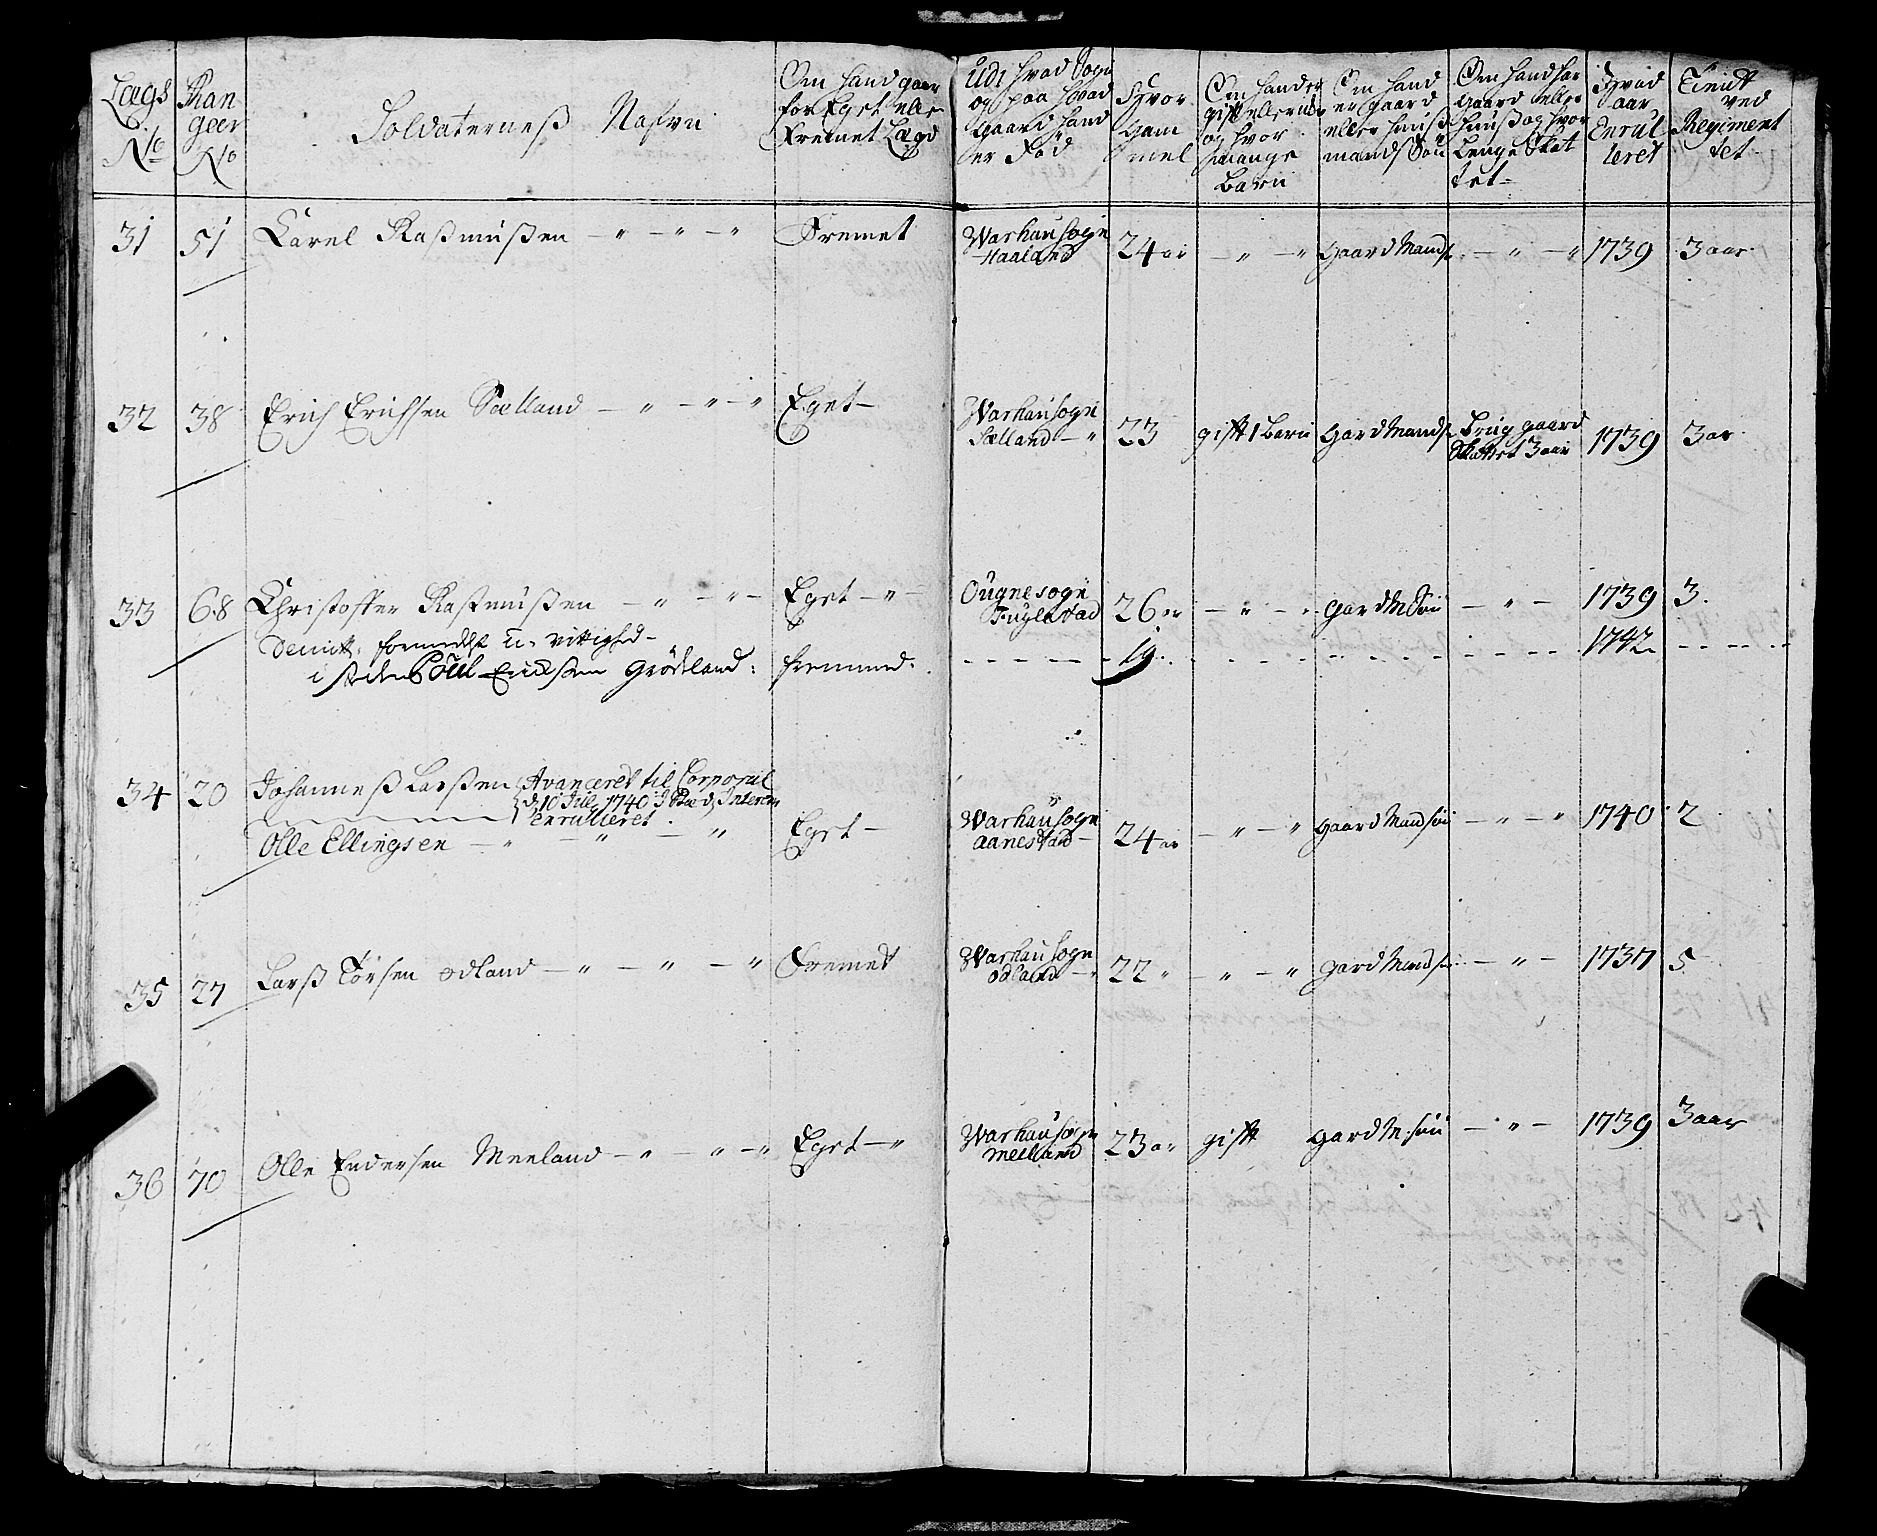 Lægs No
Ran geer No
Soldaterneß Nafvn
Om hand gaar for Eget eller Fremet Lægd
Udi hvad Sogn og paa hvad Gaard hand er Fød
Hvor Gam mel
Om hand er gift eller uu og hvor mange Barn
Om hand er gaard eller huuß mands Søn
Om hand har Gaard eller huuß og hvor Lenge Skat tet
Hvad aar Enrul leret
Tient ved Regiment tet
31 51 Karel Raßmußen Fremet Warhau sogn Haaland 24 ar Gaard Mands 1739 3 aar
32 38 Erich Erichsen Sælland Eget Warhau sogn Sælland 23 gift 1 Barn Gard Mands Brug gaard Skattet 3 aar 1739 3 ar
33 68 Christoffer Raßmußen Eget Ougne sogn Fuglestad 26 ar gard M Søn 1739 3
Demitt: formedelst u-vittighed
i steden Poul Erichsen Grødeland: fremmed. 19. 1742
34 20 Johanneß Larßen Avanceret til Corporal
d, 10 Julij 1740 I Sted, Interim
enrulleret
Olle Ellingsen Eget Warhau sogn Aanestad 24 ar Gaard Mand søn 1740 2
35 27 Larß Torsen Odland Fremet Warhau sogn Odland 22 gard Mand søn 1737 5
36 70 Olle Endersen Meeland Eget Warhau sogn Melland 23 ar gift gard M. søn 1739 3 aar